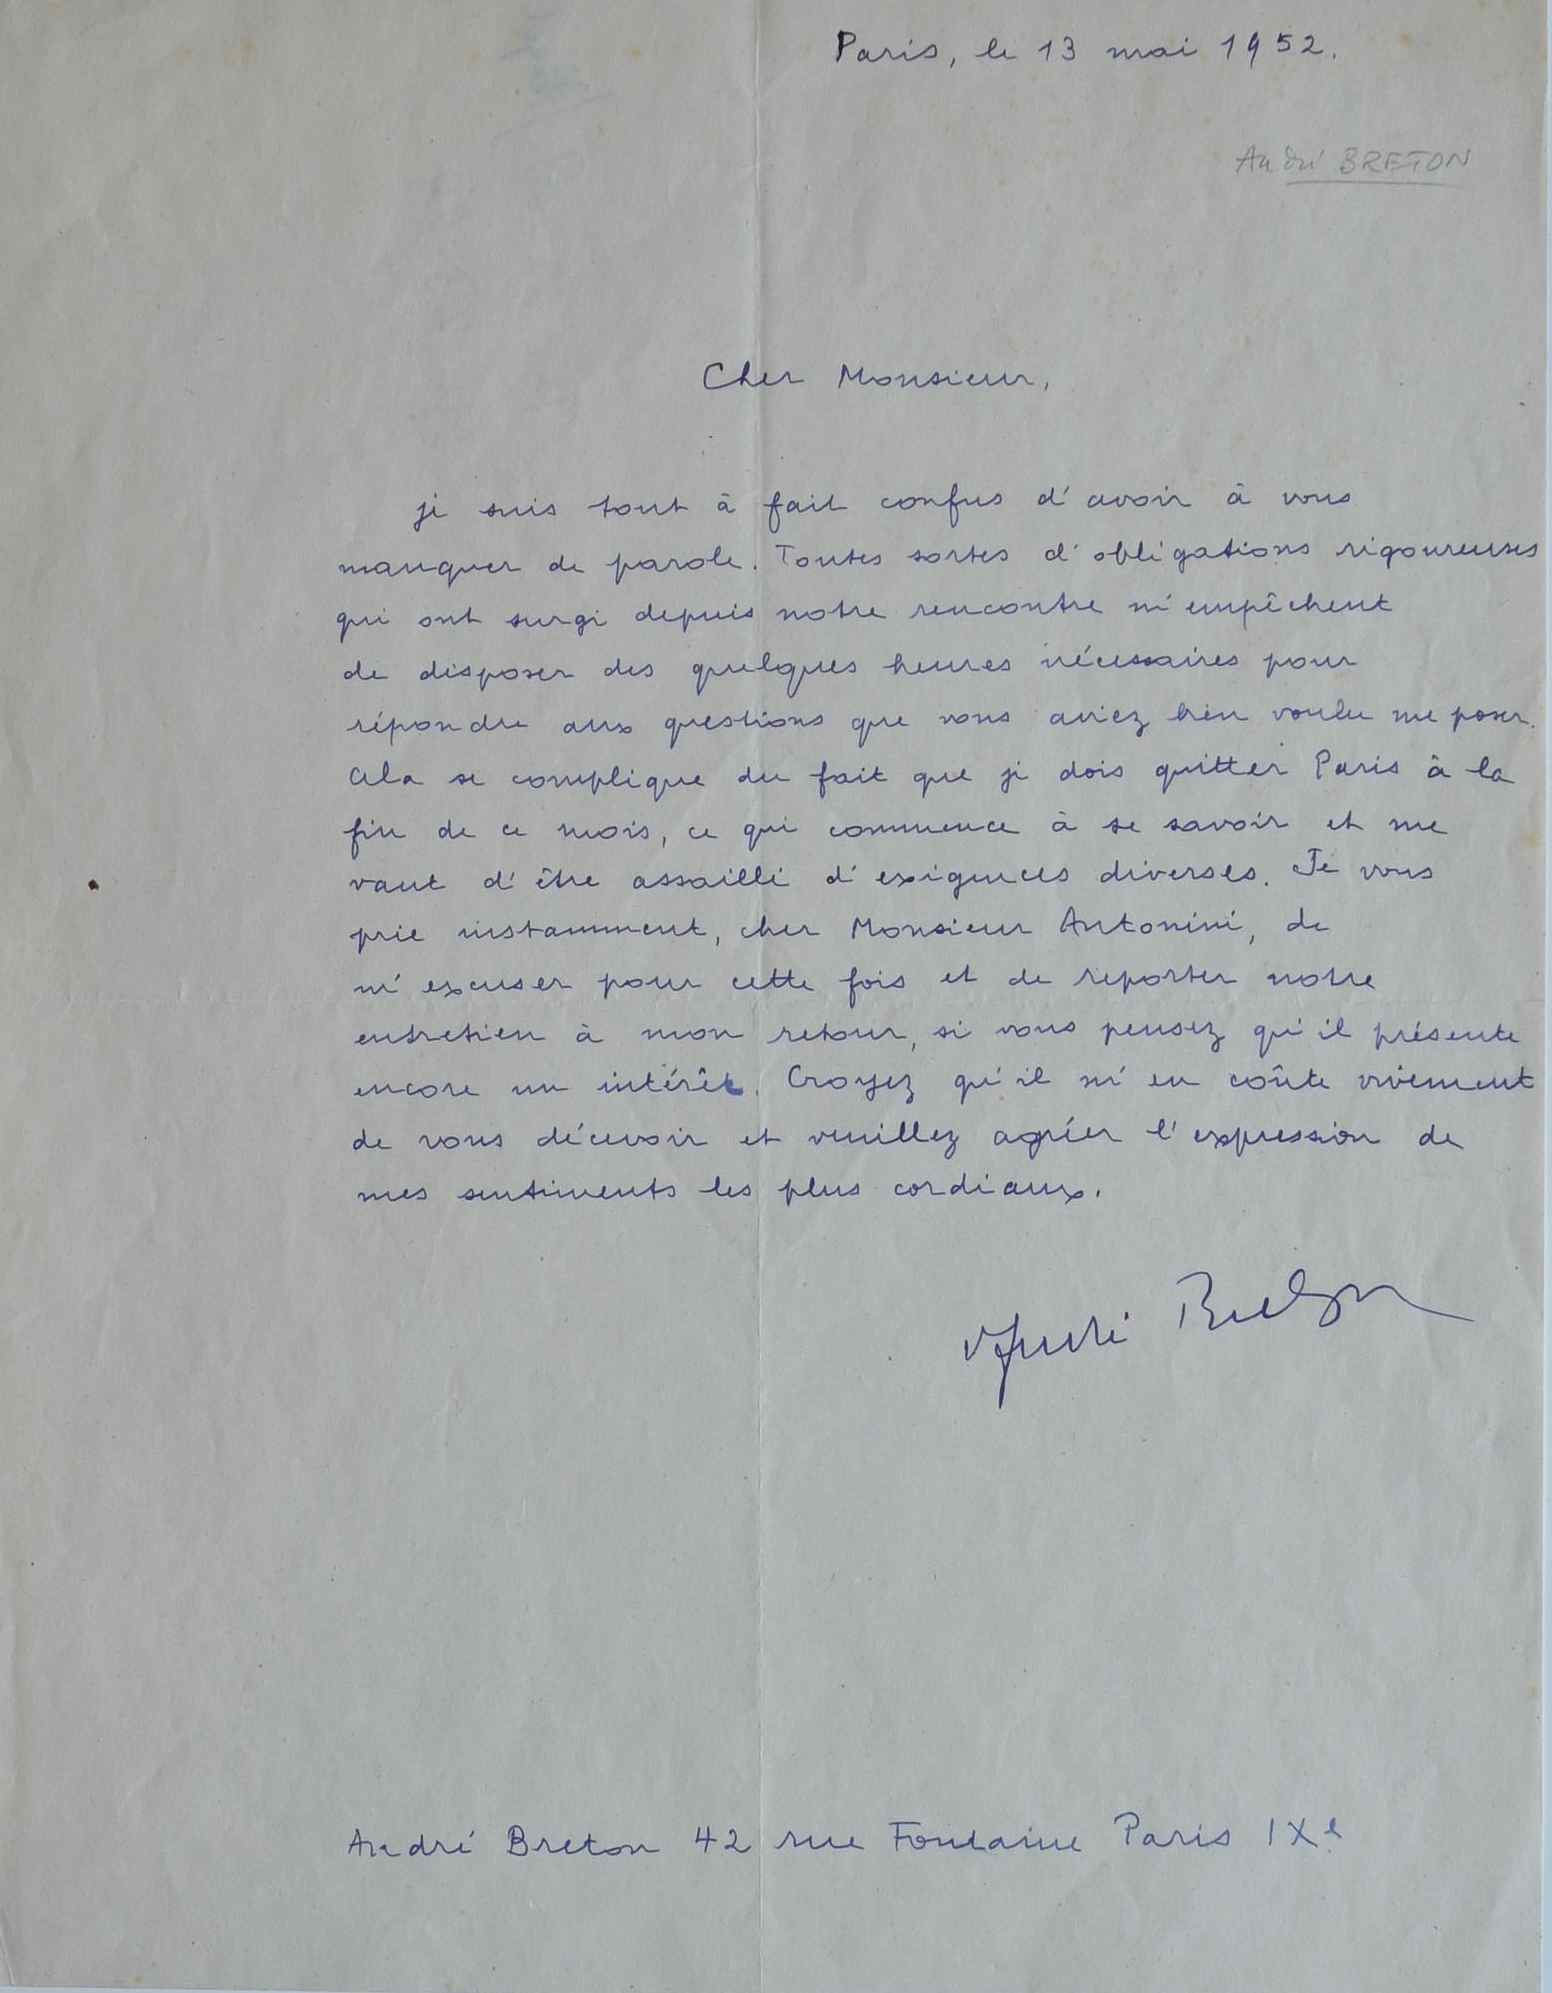 Paris, le 13 mai 1952.
André BRETON
Cher Monsieur,
je suis tout à fait confus d'avoir à vous
manquer de parole. Toutes sortes d'obligations rigoureuses
qui ont surgi depuis notre rencontre m'empêchent
de disposer des quelques heures nécessaires pour
répondre aux questions que vous aviez bien voulu me poser.
Cela se complique du fait que je dois quitter Paris à la
fin de ce mois, ce qui commence à se savoir et me
vaut d'être assailli d'exigences diverses. Je vous
prie instamment, cher Monsieur Antonini, de
m'excuser pour cette fois et de reporter notre
entretien à mon retour, si vous pensez qu'il présente
encore un intérêt. Croyez qu'il m'en coûte vivement
de vous décevoir et veuillez agréer l'expression de
mes sentiments les plus cordiaux.
André Breton
André Breton 42 rue Fontaine Paris IXe